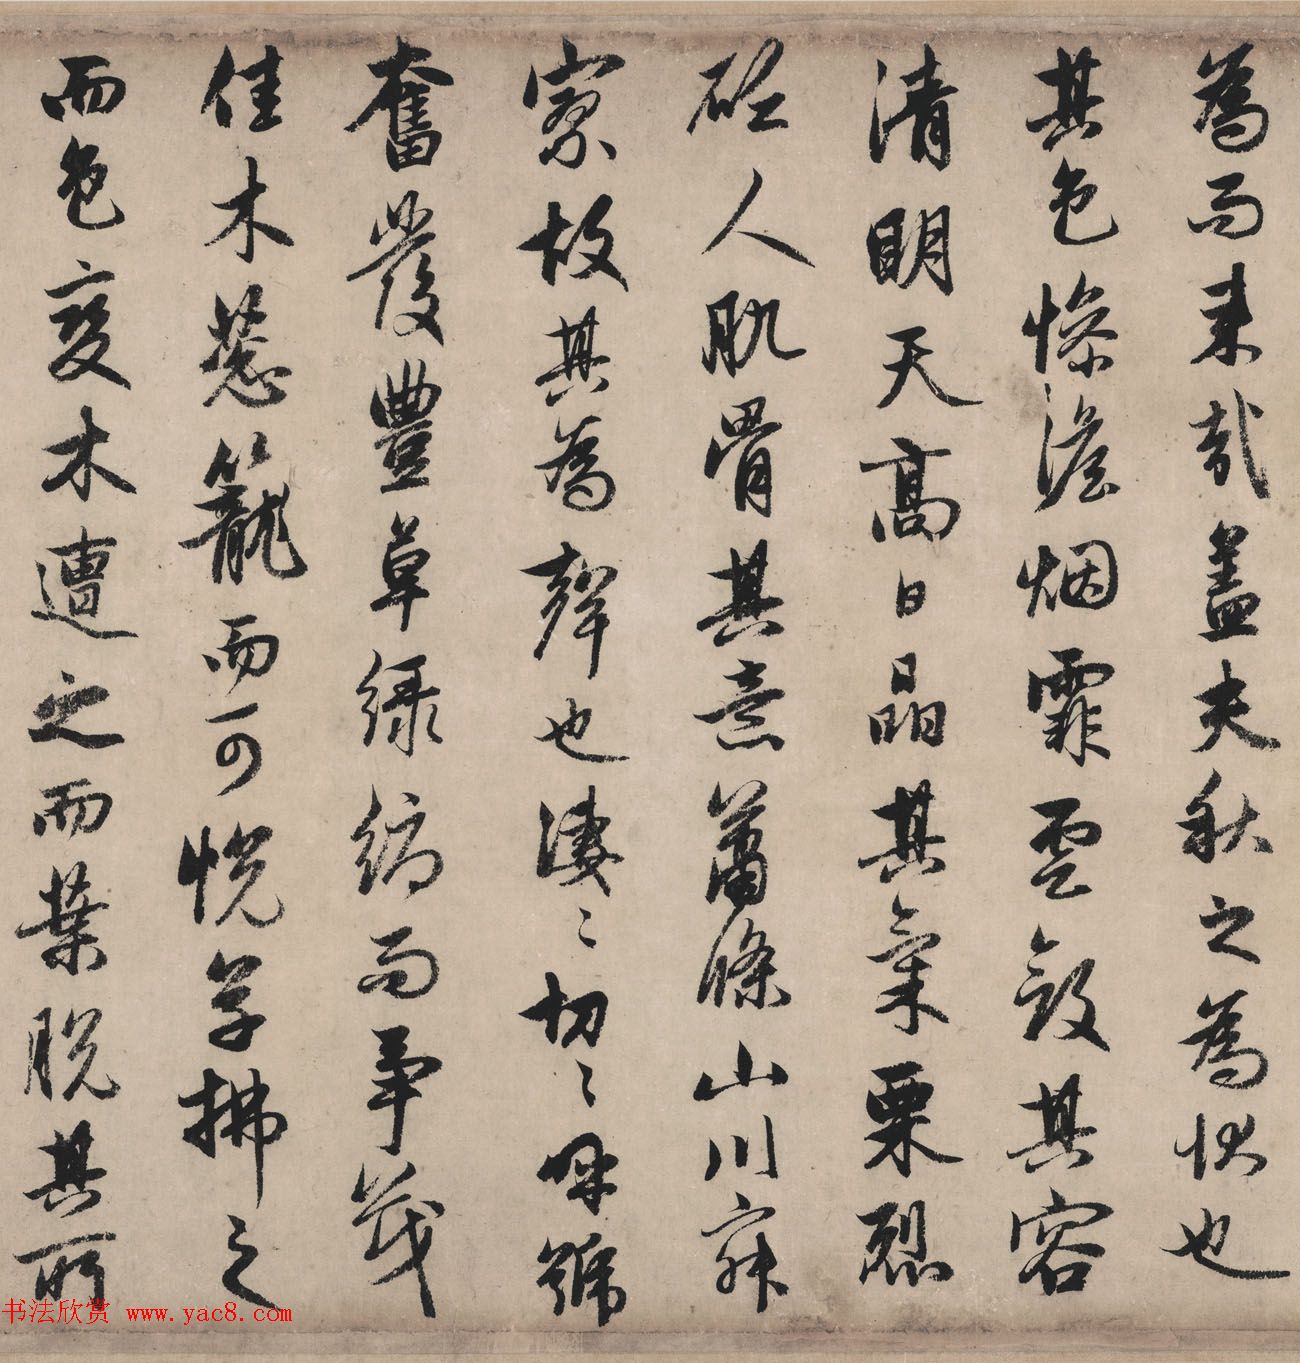 為而来哉盖夫秋之為状也
其色惨澹烟霏雲斂其容
清明天高日晶其氣栗烈
砭人肌骨其意蕭條山川寂
寥故其為聲也凄〻切〻呼號
奮發豐草緑縟而争茂
佳木葱籠而可悦草拂之
而色變木遭之而葉脱其所
书法欣赏 www.yac8.com